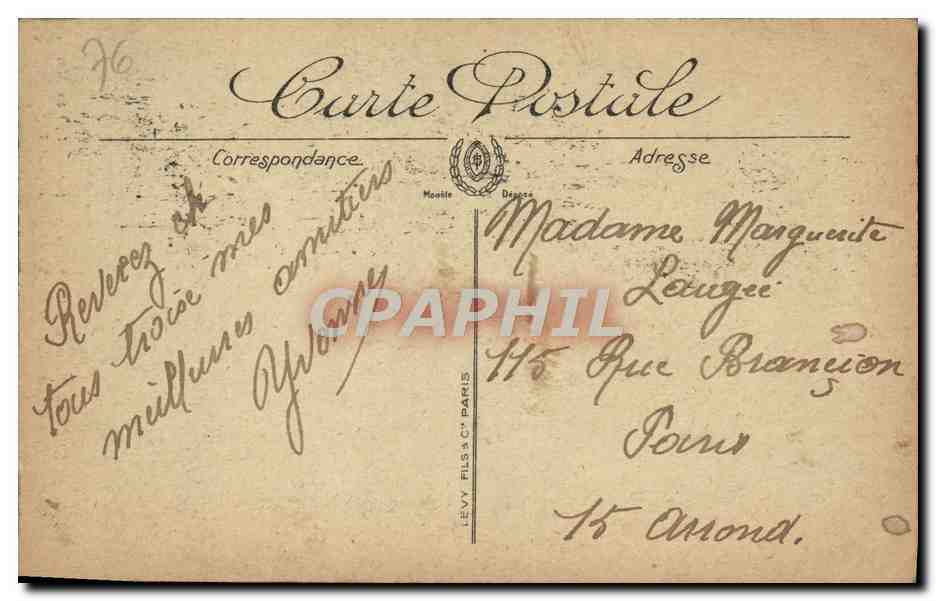 76
Carte Postale
Correspondance
Adresse
Modèle Déposé
Reverez ch
tous troise mes
meillures amitiers
Yvonne
Madame Marguerite
Laugée
115 Rue Brançion
Paris
15 Arrond.
LEVY FILS & Cie PARIS
CPAPHIL